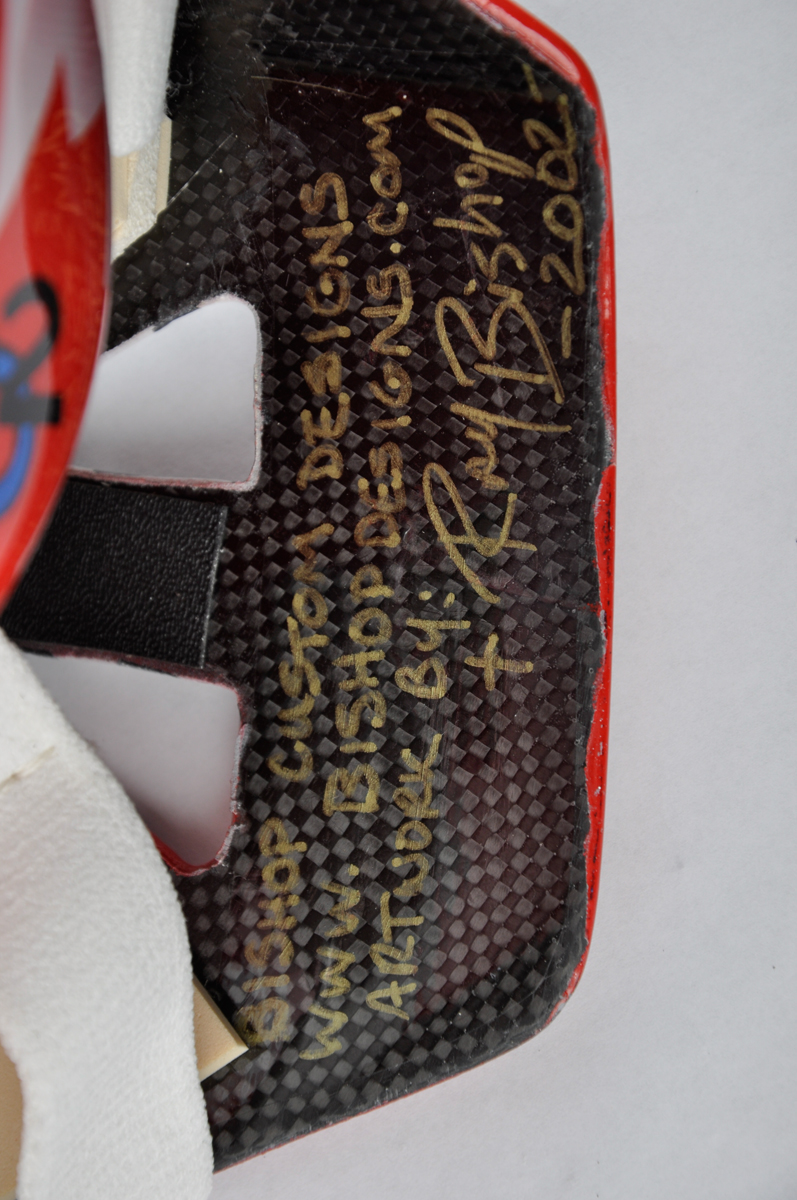 BISHOP CUSTOM DESIGNS
WWW. BISHOPDESIGNS.com
ARTWORK BY: Ray Bishop
+
-2002-